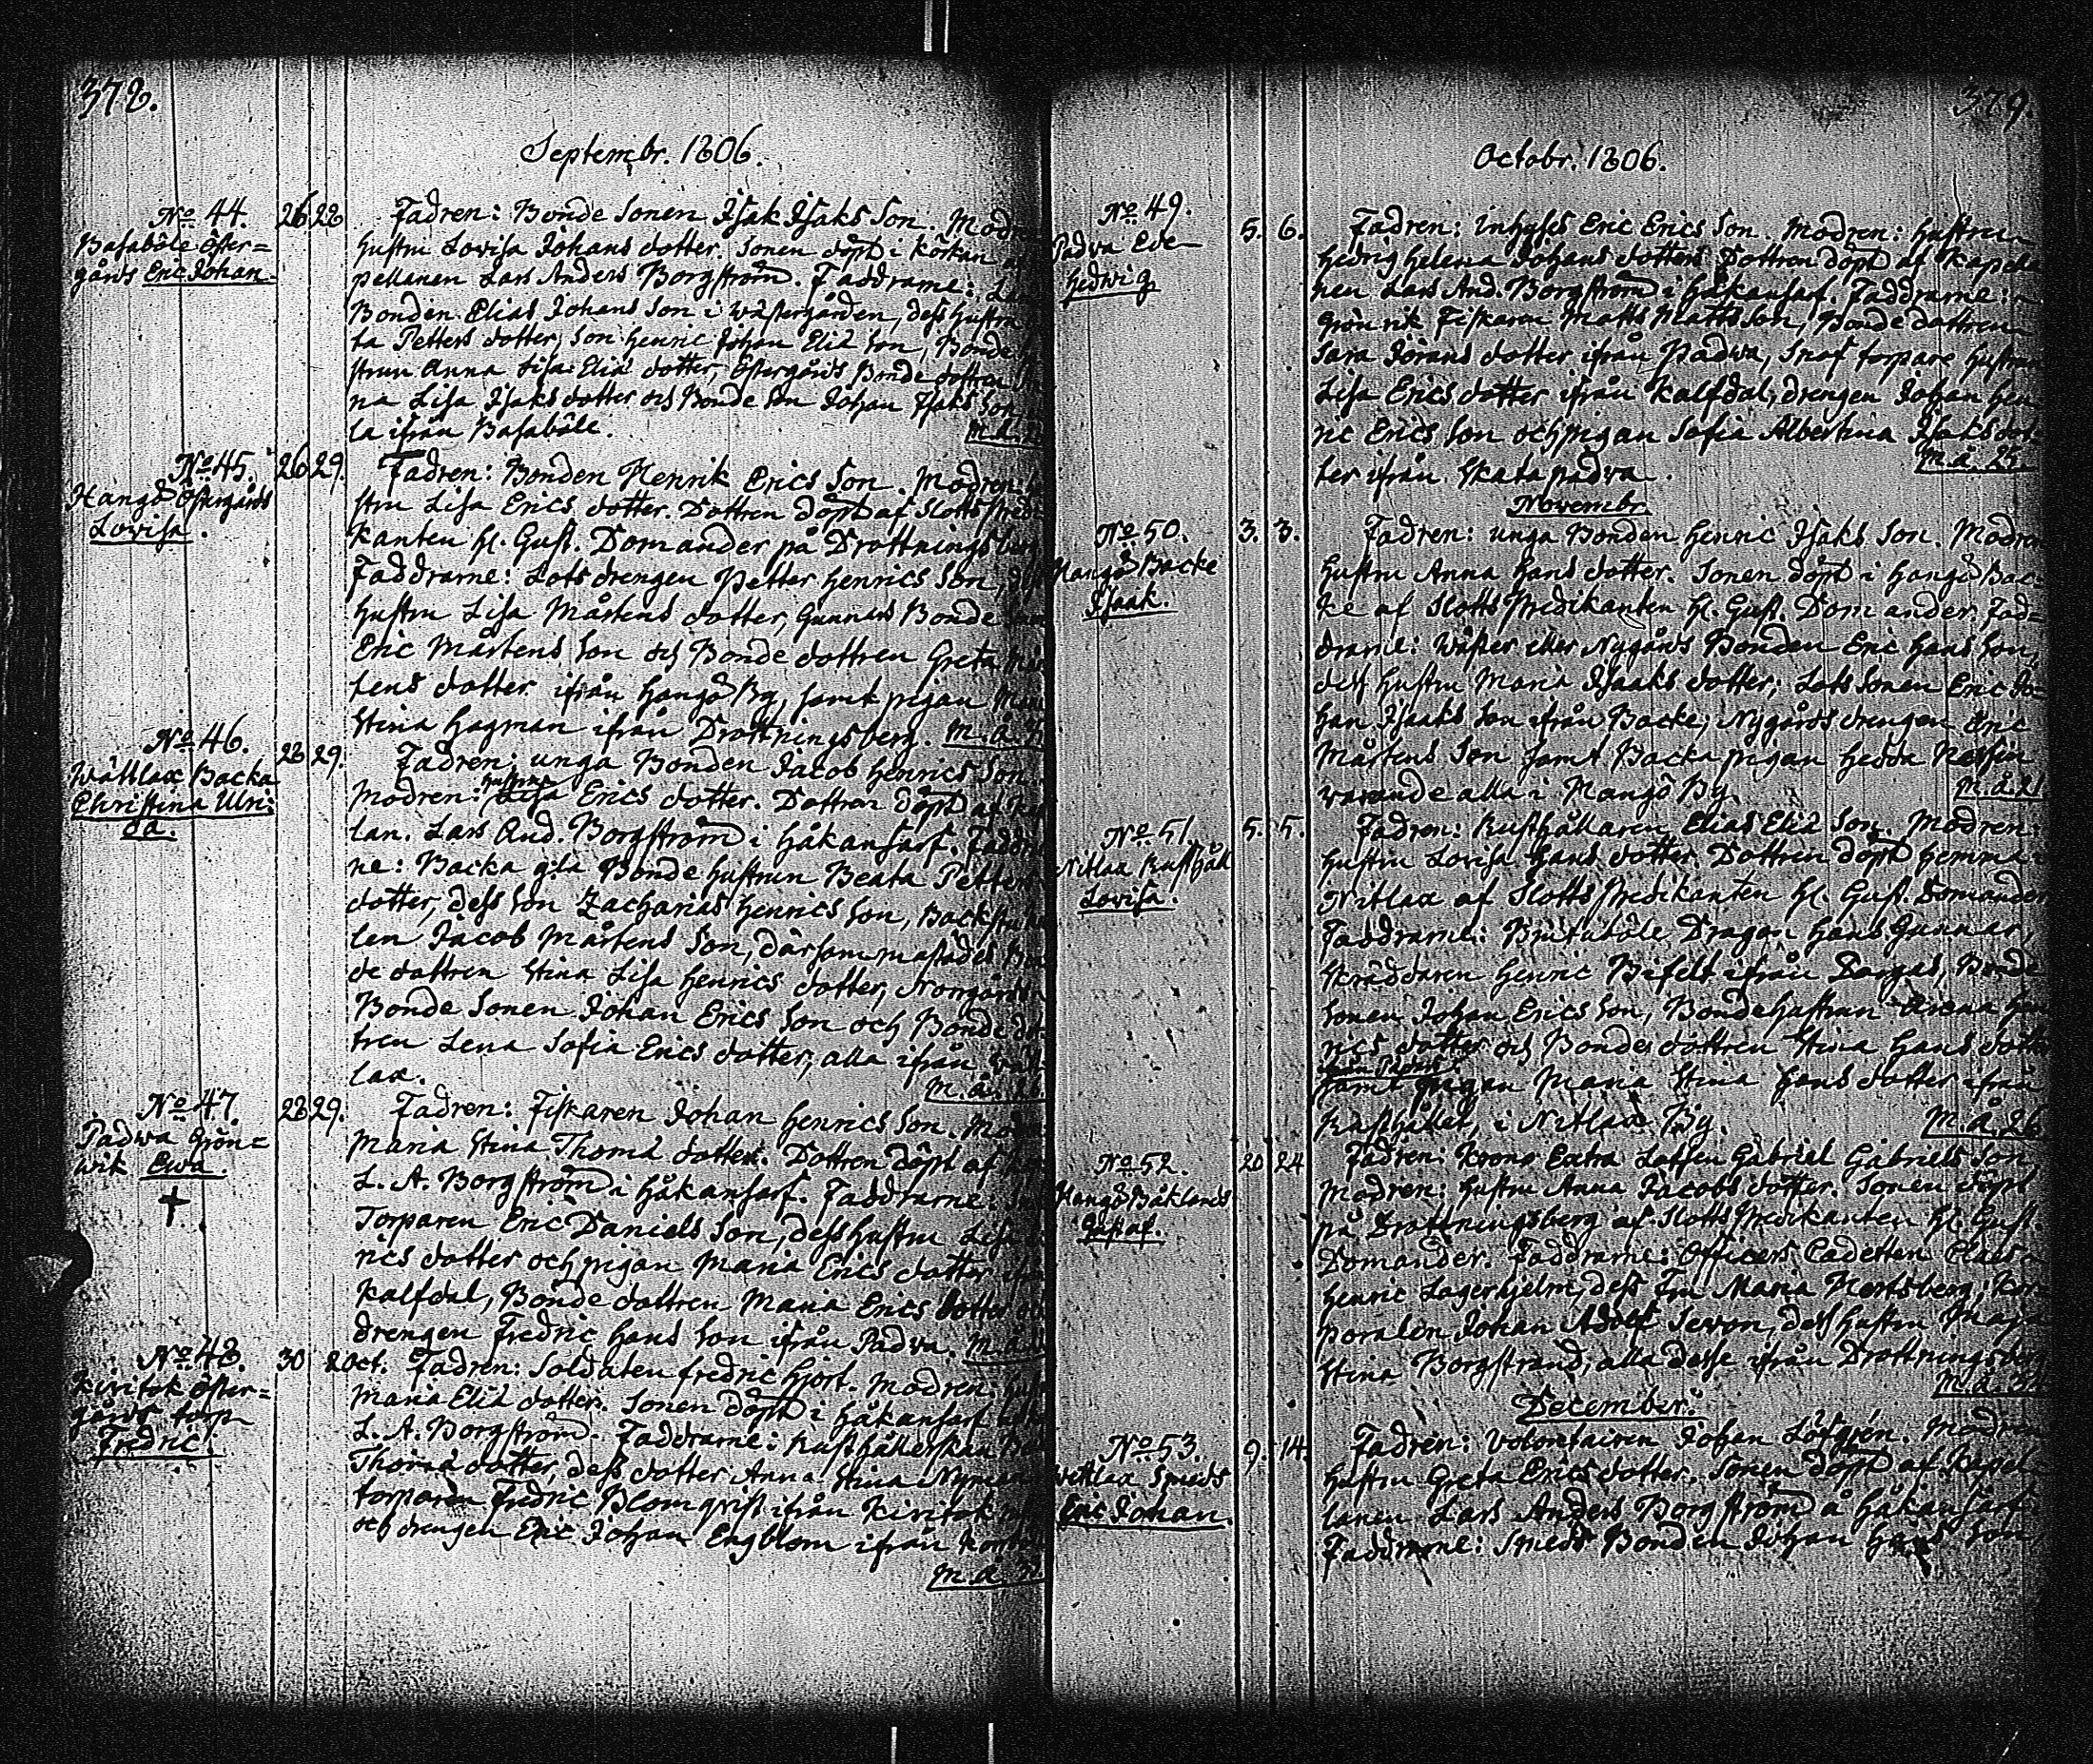 378.
Septembr. 1806.
No 44. 26 28
Basaböle Öster=
gårds Eric Johan.
Fadren: Bonde Sonen Isak Isaks Son. Modr
hustru Lovisa Johans dotter. Sonen döpt i körkan
pellanen Lars Anders Borgström. Faddrarne:
Bonden Elias Johans Son i wästergården, dess hustru
ta Petters dotter, Son Henric Johan Eliä Son, Bonde
strun Anna Lisa Eliä dotter, Östergårds Bonde dottren
na Lisa Isaks dotter och Bonde Son Johan Isaks Son
la ifrån Basaböle. M. å.
No 45. 26 29.
Hangö Östergårds
Lovisa.
Fadren: Bonden Henrik Erics Son. Modren:
stru Lisa Erics dotter. Dottren döpt af Slotts Predi
kanten H. Gust. Domander på Drottningsberg
Faddrarne: Lots drengen Petter Henrics Son,
hustru Lisa Mårtens dotter, Gunnars Bonde
Eric Mårtens Son och Bonde dottren Greta
tens dotter ifrån Hangö By, samt pigan
Stina Hagman ifrån Drottningsberg. M. å.
No 46. 28 29.
Wättlax Backa
Christina Ulri:
ca.
Fadren: unga Bonden Jacob Henrics Son.
Modren: hustru Lisa Erics dotter. Dottren döpt af
lan. Lars And. Borgström i Håkansarf. Faddra
ne: Backa gla Bonde hustrun Beata Petters
dotter, dess Son Zacharias Henrics Son, Backstu
len Jacob Mårtens Son, därsammastädes
de dottren Stina Lisa Henrics dotter, Norrgårds
Bonde Sonen Johan Erics Son och Bonde dot
tren Lena Sofia Erics dotter, alla ifrån Wätt
lax. M. å.
No 47 28 29.
Padwa Grön=
wik Ewa.
Fadren: Fiskaren Johan Henrics Son.
Maria Stina Thomä dotter. Dottren döpt af
L. A. Borgström i Håkansarf. Faddrarne:
Torparen Eric Daniels Son, dess hustru Lisa
rics dotter och pigan Maria Erics dotter
Kalfdal, Bonde dottren Maria Erics dotter
drengen Fredric Hans Son ifrån Padva. M. å.
No 48. 30 2 Oct.
Kivitok Öster=
gårds torp
Fredric.
Fadren: Soldaten Fredric Hjort. Modren:
Maria Eliä dotter. Sonen döpt i Håkansarf
L. A. Borgström. Faddrarne: Rusthållerskan
Thomä dotter, dess dotter Anna Stina Nyman
torparen Fredric Blomqvist ifrån Kivitok
och drengen Eric Johan Engblom ifrån
M. å.
379.
Octobr. 1806.
No 49. 5. 6.
Padva Eva
Hedwig
Fadren: inhyses Eric Erics Son. Modren: hustru
Hedvig Helena Johans dotter. Dottren döpt af Kapella
nen Lars And. Borgström i Håkansarf. Faddrarne:
Grönvik Fiskaren Matts Matts Son, Bonde dottren
Sara Jörans dotter ifrån Padwa, torpare hustrun
Lisa Erics dotter ifrån Kalfdal, drengen Johan Hen
ric Erics Son och pigan Sofia Albertina Isaks dot
ter ifrån Skatapadva. M. å. 25.
Novembr.
No 50. 3. 3.
Hangö Backe
Isaak.
Fadren: unga Bonden Henric Isaks Son. Modren
hustru Anna Hans dotter. Sonen döpt i Hangö Bac=
ke af Slotts Predikanten H. Gust. Domander. Fad=
drarne: Wäster eller Nygårds Bonden Eric Hans Son,
dess hustru Maria Isaaks dotter, Lots Sonen Eric Jo=
han Isaaks Son ifrån Backe, Nygårds drengen Eric
Mårtens Son samt Backa pigan Hedda
varande alla i Hangö By. M. å. 21.
No 51. 5. 5.
Nitlax Rusthåll
Lovisa.
Fadren: Rusthållaren Elias Eliä Son. Modren:
hustru Lovisa Hans dotter. Dottren döpt hemma i
Nitlax af Slotts Predikanten H. Gust. Domander
Faddrarne: Dragon Hans Gunnar,
Skräddaren Henric Bifelt ifrån Pargas, Bonde
Sonen Johan Erics Son, Bondehustrun Anna Hen
rics dotter och Bonde dottren Stina Hans dotter
samt pigan Maria Stina Hans dotter ifrån
Rusthållet, i Nitlax By. M. å. 26.
No 52. 20 24
Hangö Båklands
Gustaf.
Fadren: Krono Extra Lotsen Gabriel Gabriels Son
Modren: hustru Anna Jacobs dotter. Sonen döpt
på Drottningsberg af Slotts Predikanten H. Gust.
Domander. Faddrarne: Officers Cadetten Claes
Henric Lagerhjelm, dess Fru Maria Hertsberg, Kor
poralen Johan Adolf Sevon, dess hustru Maja
Stina Borgstrand, alla desse ifrån Drottningsberg
M. å.
December.
No 53. 9. 14.
Wettlax Smeds
Eric Johan.
Fadren: Volontairen Johan Löfgrén. Modren
hustru Greta Erics dotter. Sonen döpt af Kapel
lanen Lars Anders Borgström å Håkansarf
Faddrarne: Smeds Bonden Johan Hans Son,